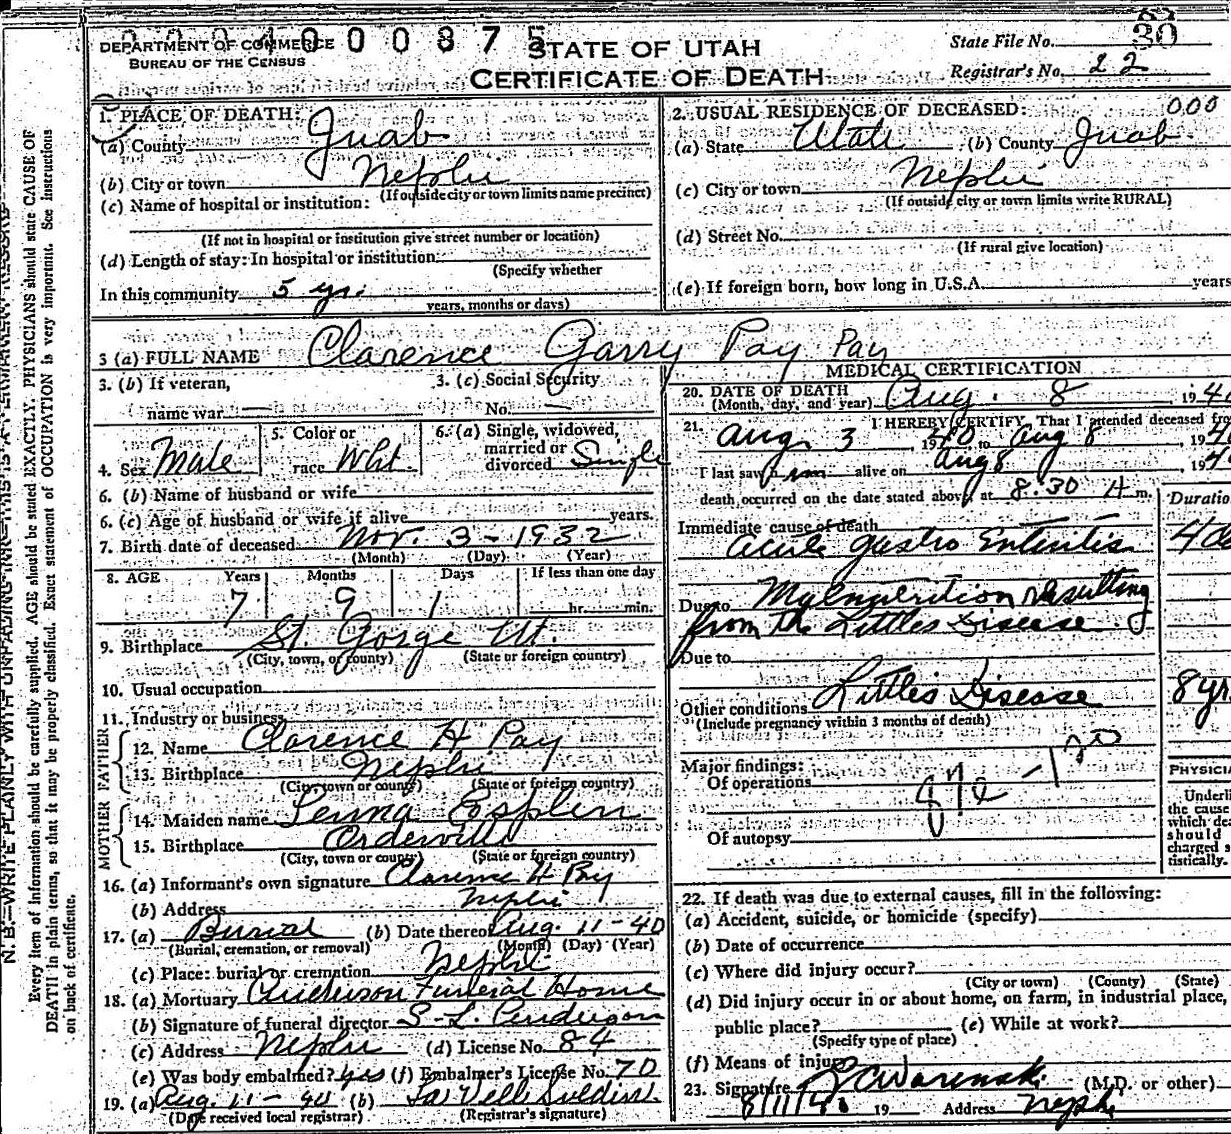 DEPARTMENT OF COMMERCE
BUREAU OF THE CENSUS
0004000875
STATE OF UTAH
CERTIFICATE OF DEATH
State File No. 30
Registrar's No. 22
N. B.—WRITE PLAINLY, WITH UNFADING INK—THIS IS A PERMANENT RECORD
Every item of information should be carefully supplied. AGE should be stated EXACTLY. PHYSICIANS should state CAUSE OF
DEATH in plain terms, so that it may be properly classified. Exact statement of OCCUPATION is very important. See instructions
on back of certificate.
1. PLACE OF DEATH:
(a) County Juab
(b) City or town Nephi
(If outside city or town limits name precinct)
(c) Name of hospital or institution:
(If not in hospital or institution give street number or location)
(d) Length of stay: In hospital or institution
(Specify whether
In this community 5 yr.
years, months or days)
2. USUAL RESIDENCE OF DECEASED: 000
(a) State Utah (b) County Juab
(c) City or town Nephi
(If outside city or town limits write RURAL)
(d) Street No.
(If rural give location)
(e) If foreign born, how long in U.S.A. years
3 (a) FULL NAME Clarence Garry Pay Pay
3. (b) If veteran,
name war —
3. (c) Social Security
No. —
4. Sex Male
5. Color or
race Wht.
6. (a) Single, widowed,
married or
divorced Single
6. (b) Name of husband or wife
6. (c) Age of husband or wife if alive years.
7. Birth date of deceased Nov. 3 - 1932
(Month) (Day) (Year)
8. AGE Years Months Days If less than one day
7 9 1 hr. min.
9. Birthplace St. Gorge Ut.
(City, town, or county) (State or foreign country)
10. Usual occupation
11. Industry or business
FATHER
12. Name Clarence H Pay
13. Birthplace Nephi
(City, town or county) (State or foreign country)
MOTHER
14. Maiden name Lenna Esplin
15. Birthplace Orderville
(City, town or county) (State or foreign country)
16. (a) Informant's own signature Clarence H Pay
(b) Address Nephi
17. (a) Burial (b) Date thereof Aug. 11-40
(Burial, cremation, or removal) (Month) (Day) (Year)
(c) Place: burial or cremation Nephi
18. (a) Mortuary Anderson Funeral Home
(b) Signature of funeral director S. L. Anderson
(c) Address Nephi (d) License No. 84
(e) Was body embalmed? yes (f) Embalmer's License No. 70
19. (a) Aug. 11-40 (b)
(Date received local registrar) (Registrar's signature)
MEDICAL CERTIFICATION
20. DATE OF DEATH
(Month, day, and year) Aug. 8, 194
21. I HEREBY CERTIFY, That I attended deceased
Aug. 3, 1940 to Aug 8, 194
I last saw him alive on Aug 8, 194
death occurred on the date stated above, at 8:30 A m.
Immediate cause of death Duratio
Acute Gastro Enteritis 4
Due to Malnutrition resulting
from the Littles Disease.
Due to
Other conditions Little's Disease 8 yr
(Include pregnancy within 3 months of death)
Major findings:
Of operations
Of autopsy
PHYSICIA
Underli
the cause
which de
should
charged s
tistically.
22. If death was due to external causes, fill in the following:
(a) Accident, suicide, or homicide (specify)
(b) Date of occurrence
(c) Where did injury occur?
(City or town) (County) (State)
(d) Did injury occur in or about home, on farm, in industrial place,
public place? (e) While at work?
(Specify type of place)
(f) Means of injury
23. Signature (M.D. or other)
8/11/40 19 Address Nephi